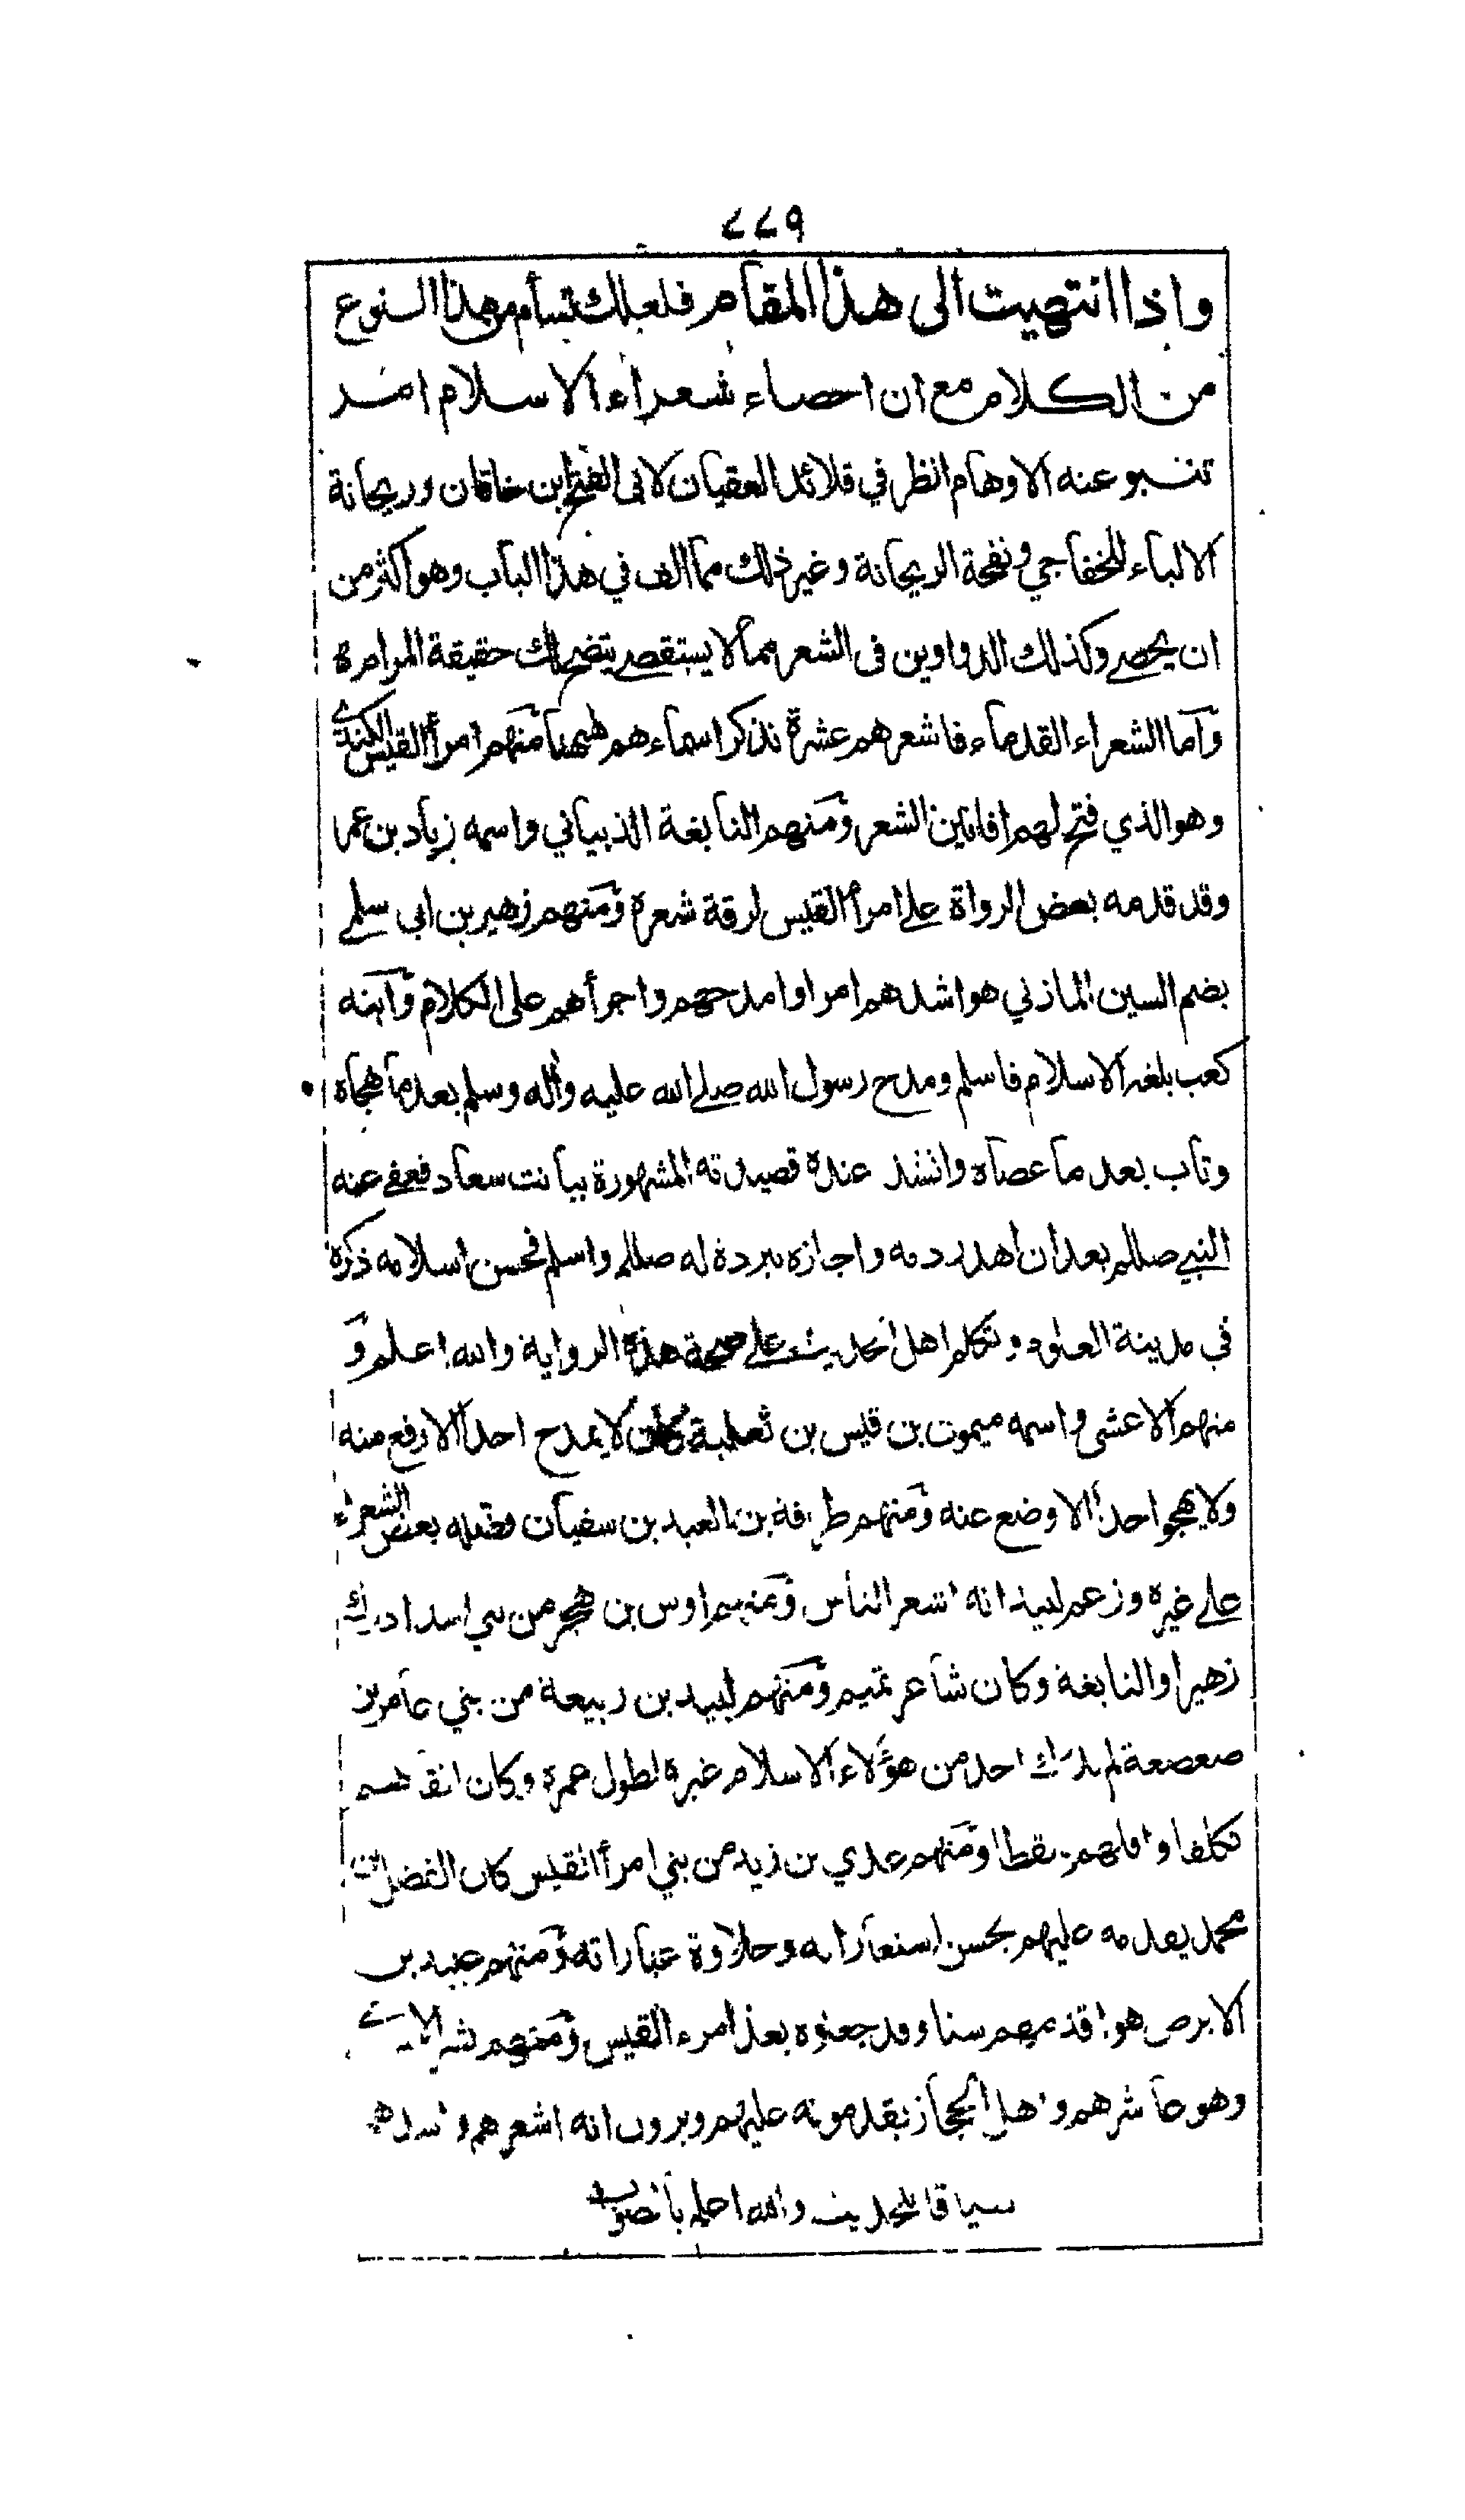 ٧٧٩
واذا انتهيت الى هذا المقام فلعلك تسأم من هذا النوع
من الكلام مع ان احصاء شعراء الاسلام امر
تنبو عنه الاوهام انظر في قلائد العقيان لابى الفتح ابن خاقان وريحانة
الالباء للخفاجي ونفحة الريحانة وغير ذلك مما الف في هذا الباب وهو اكثر من
ان يحصے وكذلك الدواوين فى الشعر مما لا يستقصے يتضح لك حقيقة المرام
وآما الشعراء القدماء فاشعرهم عشرة نذكر اسماءهم ههنا منهم امرأ القيس الكندي
وهو الذي فتح لهم افانين الشعر ومنهم النابغة الذبياني واسمه زياد بن عمر
وقد قدمه بعض الرواة علے امرأ القيس لرقة شعره ومنهم زهير بن ابي سلمے
بضم السين المازني هو اشدهم امرا وامدحهم واجرأهم على الكلام وآبنه
كعب بلغه الاسلام فاسلم ومدح رسول الله صلے الله عليه وآله وسلم بعد ما هجاه
وتاب بعد ما عصاه وانشد عنده قصيدته المشهورة ببانت سعاد فعفے عنه
النبي صللم بعد ان اهدر دمه واجازه ببردة له صللم واسلم فحسن اسلامه ذكره
في مدينة العلوم وتكلم اهل الحديث علے صحة هذه الرواية والله اعلم و
منهم الاعشى واسمه ميمون بن قيس بن ثعلبة كان لا يمدح احدا الا رفع منه
ولا يهجو احدا الا وضع عنه ومنهم طرفة بن العبد بن سفيان فضله بعض الشعراء
علے غيره وزعم لبيد انه اشعر الناس ومنهم اوس بن حجر من بني اسد ادرك
زهيرا والنابغة وكان شاعر تميم ومنهم لبيد بن ربيعة من بني عامر بن
صعصعة لم يدرك احد من هؤلاء الاسلام غيره لطول عمره وكان
تكلفا واقلهم سقطا ومنهم عدي بن زيد من بني امرأ القيس كان المفضل بن
محمد يقدمه عليهم بحسن استعاراته وحلاوة عباراته ومنهم عبيد بن
الابرص هو اقدمهم سنا وقد جعلوه بعد امرء القيس ومنهم
وهو عاشرهم واهل الحجاز يقدمونه عليهم ويرون انه اشعرهم
سياقا للحديث والله اعلم بالصواب